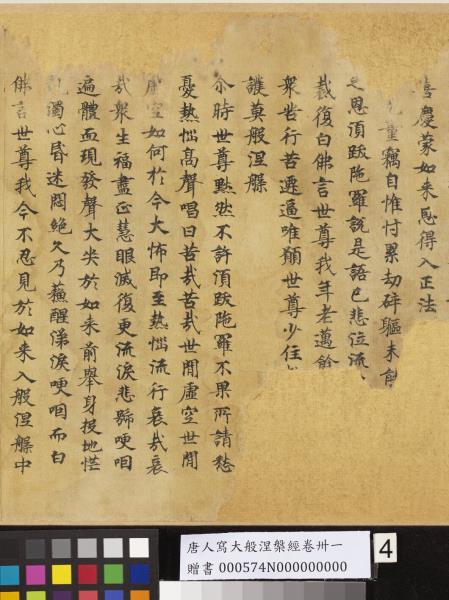 喜慶蒙如来恩得入正法
量竊自惟忖累劫碎軀未能
之恩須跋陁羅說是語已悲泣流
裁復白佛言世尊我年老邁餘
衆苦行苦遷逼唯願世尊少住
護莫般涅槃
尒時世尊默然不許須跋陁羅不果所請愁
憂熱惱高聲唱曰苦㢤苦㢤世間虛空世間
虛空如何於今大怖即至熱惱流行哀㢤哀
㢤衆生福盡正慧眼滅復更流淚悲號哽咽
遍體血現發聲大哭於如来前舉身投地㤺
乱濁心昏迷悶絕久乃蘓醒涕淚哽咽而白
佛言世尊我今不忍見於如来入般涅槃中
唐人寫大般涅槃經卷卅一
贈書 000574N000000000
4